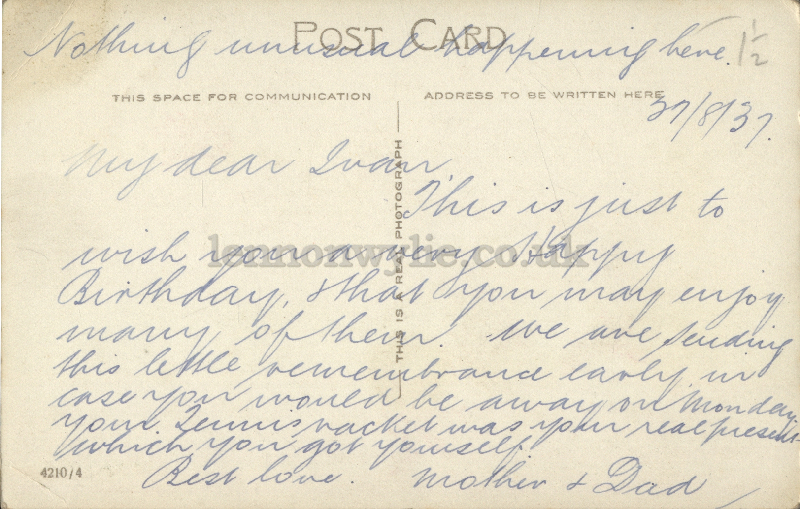 POST CARD
Nothing unusual happening here.
1½
THIS SPACE FOR COMMUNICATION
ADDRESS TO BE WRITTEN HERE
27/8/37.
My dear Ivan
This is just to
wish you a very Happy
Birthday, & that you may enjoy
many of them. We are sending
this little remembrance early in
case you would be away on Monday
your Tennis racket was your real present
which you got yourself.
Best love. Mother & Dad
THIS IS A REAL PHOTOGRAPH
4210/4
lennonwylie.co.uk